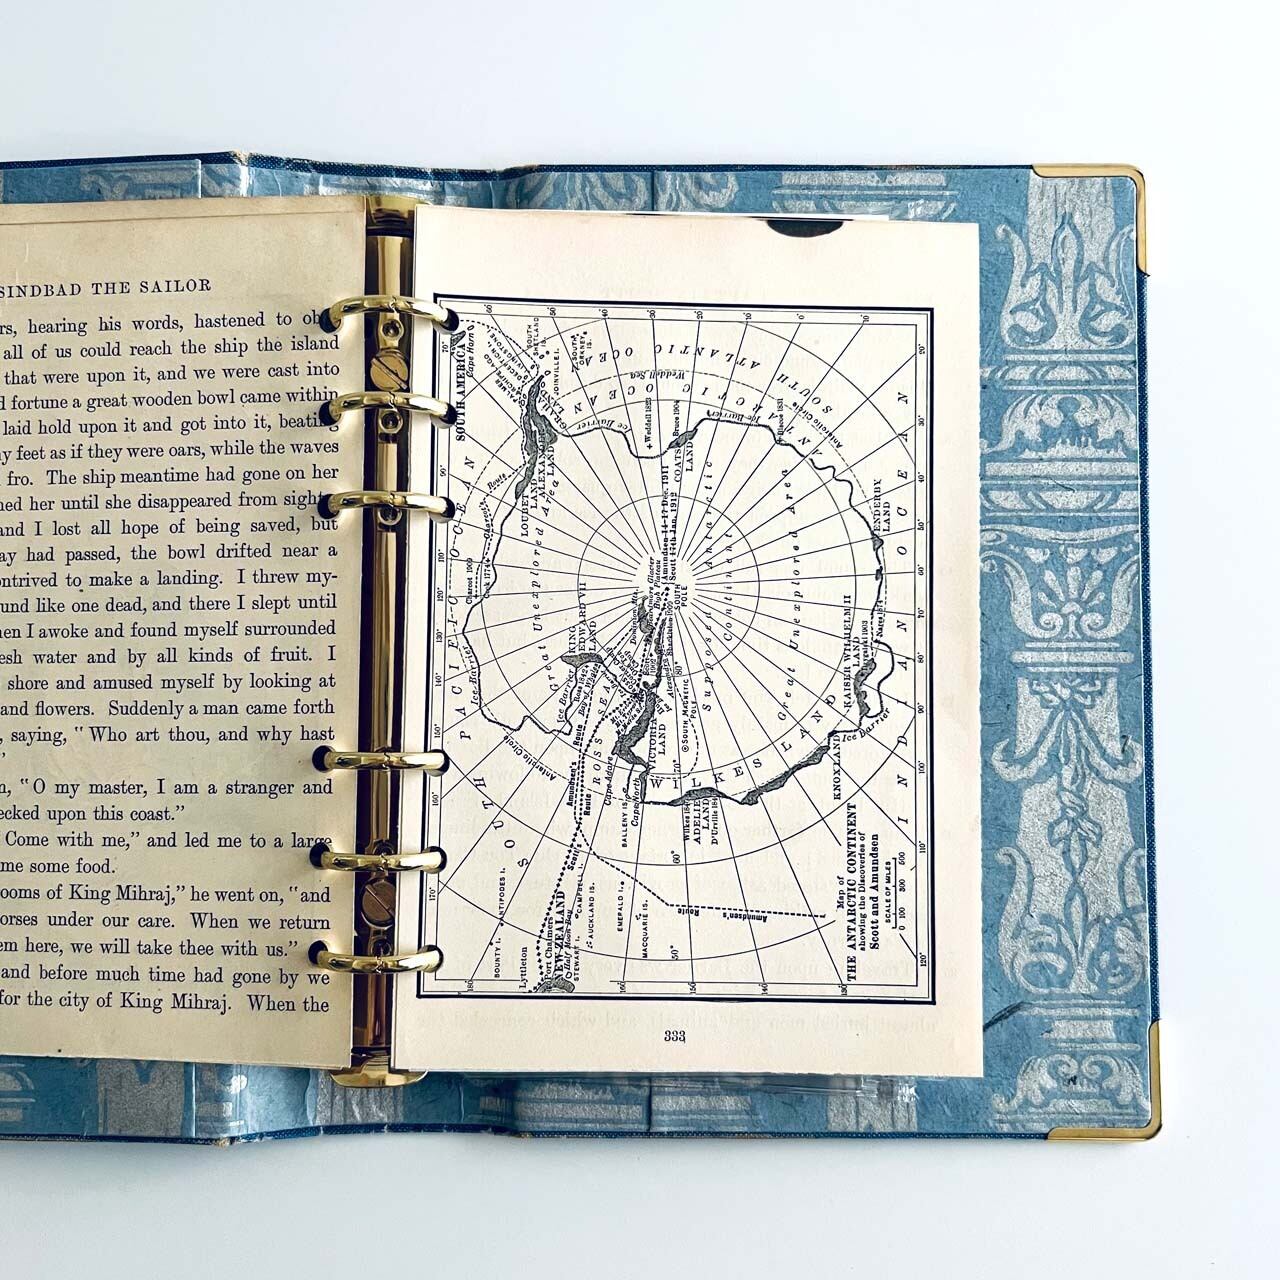 SINDBAD THE SAILOR
rs, hearing his words, hastened to ob
all of us could reach the ship the island
that were upon it, and we were cast into
d fortune a great wooden bowl came within
laid hold upon it and got into it, beating
y feet as if they were oars, while the waves
fro. The ship meantime had gone on her
ned her until she disappeared from sight
and I lost all hope of being saved, but
ay had passed, the bowl drifted near a
ontrived to make a landing. I threw my-
und like one dead, and there I slept until
hen I awoke and found myself surrounded
esh water and by all kinds of fruit. I
shore and amused myself by looking at
and flowers. Suddenly a man came forth
, saying, "Who art thou, and why hast
"
n, "O my master, I am a stranger and
ecked upon this coast."
Come with me," and led me to a large
me some food.
ooms of King Mihraj," he went on, "and
orses under our care. When we return
em here, we will take thee with us."
and before much time had gone by we
for the city of King Mihraj. When the
SOUTH AMERICA
Cape Horn
SOUTH SHETLAND IS.
JOINVILLE I.
SOUTH ORKNEY IS.
SOUTH ATLANTIC OCEAN
ANTARCTIC OCEAN
Weddell Sea
GRAHAM LAND
ALEXANDER LAND
LOUBET LAND
Ice Barrier
Weddell 1823
Bruce 1904
COATS LAND
Ice Barrier
Biscoe 1831
Antarctic Circle
ENDERBY LAND
Charcot's Route
Charcot 1909
Cook 1774
Great Unexplored Area
Amundsen 14-17 Dec. 1911
Scott 17th Jan. 1912
SOUTH POLE
Supposed Antarctic Continent
Great Unexplored Area
KING EDWARD VII LAND
KAISER WILHELM II LAND
Ice Barrier
Ice Barrier
ROSS SEA
VICTORIA LAND
SOUTH MAGNETIC POLE
WILKES LAND
Ice Barrier
Antarctic Circle
Cape Adare
Cape North
BALLENY IS.
ADELIE LAND
D'Urville 1840
KNOX LAND
SOUTH PACIFIC OCEAN
INDIAN OCEAN
Amundsen's Route
Scott's Route
ANTIPODES I.
BOUNTY I.
CAMPBELL I.
AUCKLAND IS.
EMERALD I.
MACQUARIE IS.
Amundsen's Route
Lyttleton
Port Chalmers
NEW ZEALAND
Half Moon Bay
STEWART I.
Map of
THE ANTARCTIC CONTINENT
showing the Discoveries of
Scott and Amundsen
SCALE OF MILES
0 100 300 500
333